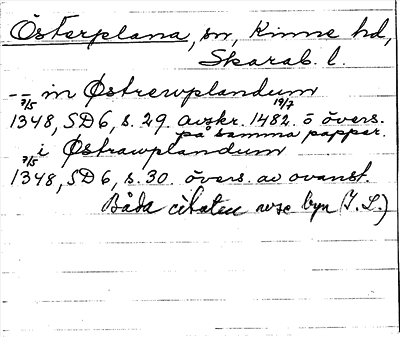 Österplana, sn, Kinne hd,
Skarab. l.
-- in Østrewplandum
7/5 1348, SD6, s. 29. avskr. 1482 19/7 o övers.
på samma papper.
i Østrawplandum
7/5 1348, SD6, s. 30. övers. av ovanst.
Båda citaten avse byn (I. L.)